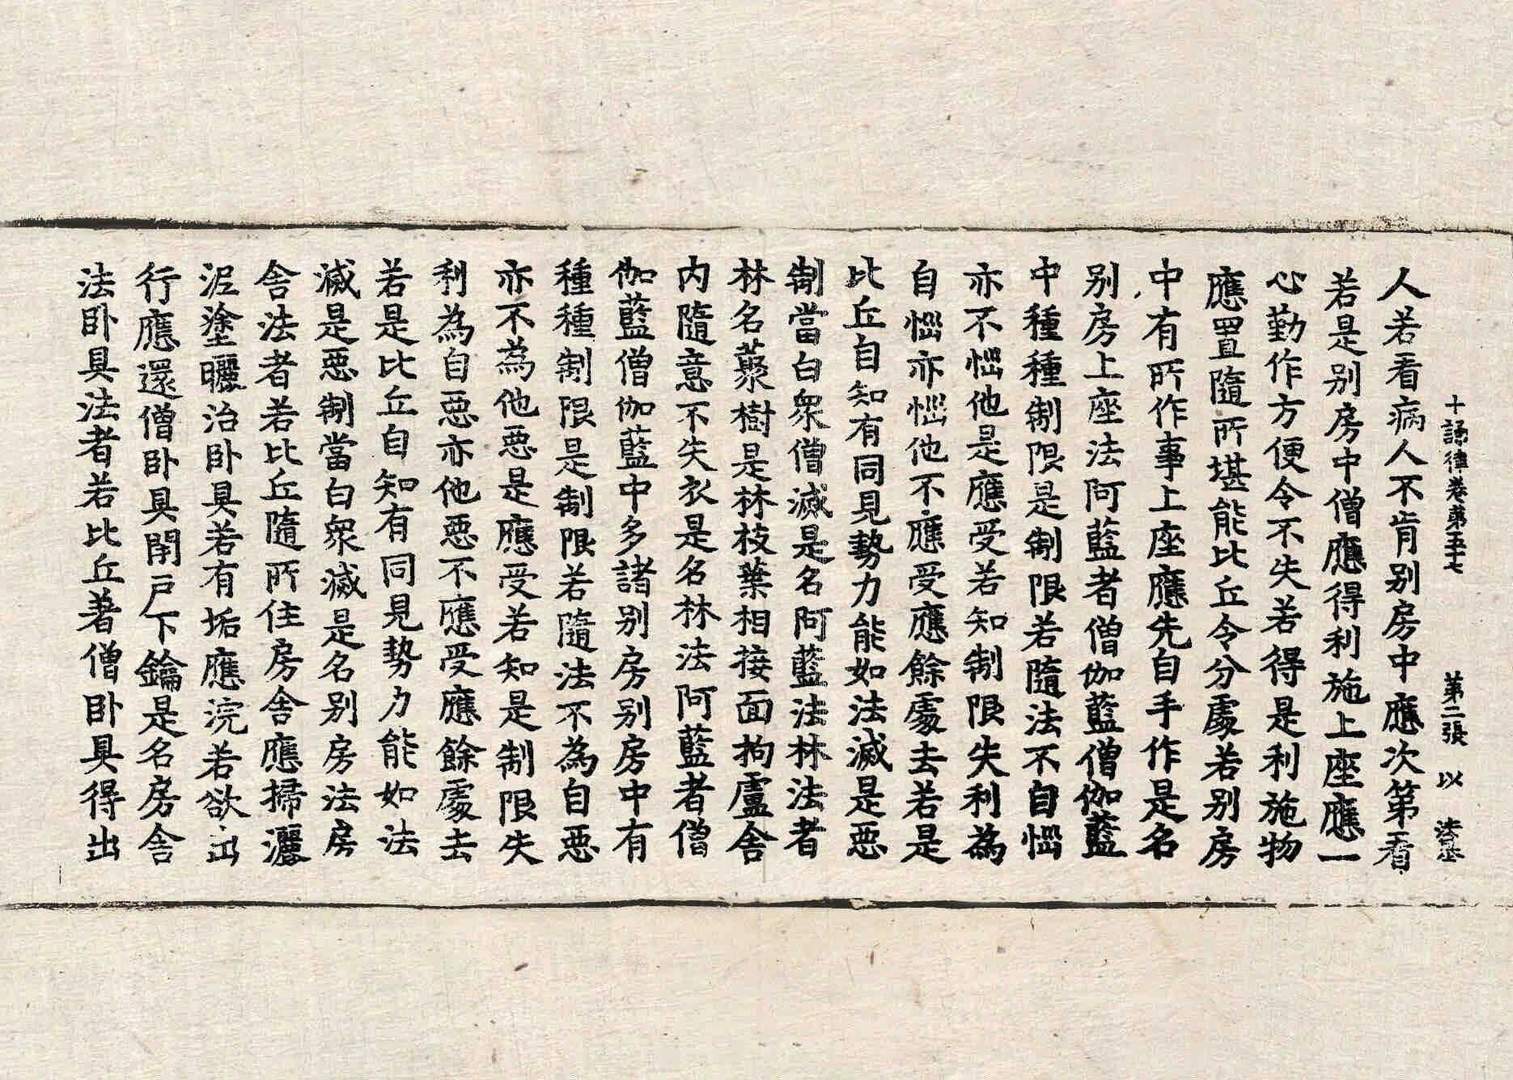 十誦律卷第五十七 第二張 以
人若看病人不肯别房中應次第看
若是别房中僧應得利施上座應一
心勤作方便令不失若得是利施物
應置隨所堪能比丘令分處若别房
中有所作事上座應先自手作是名
别房上座法阿藍者僧伽藍僧伽藍
中種種制限是制限若隨法不自惱
亦不惱他是應受若知制限失利為
自惱亦惱他不應受應餘處去若是
比丘自知有同見勢力能如法滅是惡
制當白衆僧滅是名阿藍法林法者
林名藂樹是林枝葉相接面拘盧舍
内隨意不失衣是名林法阿藍者僧
伽藍僧伽藍中多諸别房别房中有
種種制限是制限若隨法不為自惡
亦不為他惡是應受若知是制限失
利為自惡亦他惡不應受應餘處去
若是比丘自知有同見勢力能如法
滅是惡制當白衆滅是名别房法房
舍法者若比丘隨所住房舍應掃灑
泥塗曬治卧具若有垢應浣若欲出
行應還僧卧具閉戸下鑰是名房舍
法卧具法者若比丘著僧卧具得出